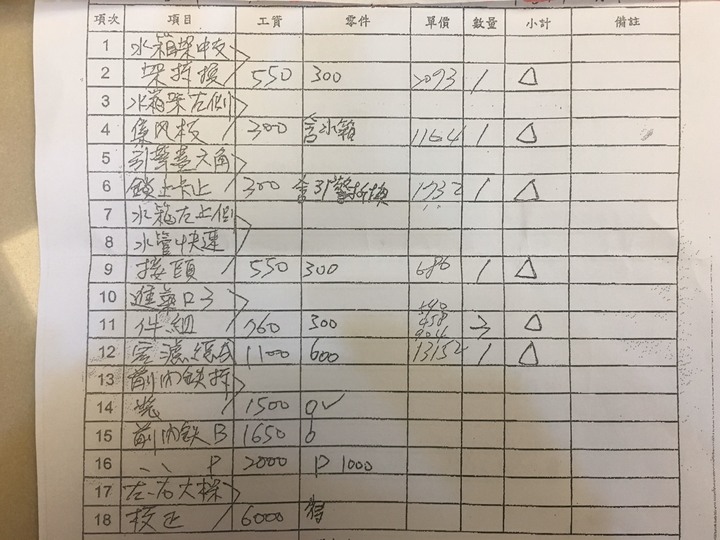 項次 項目 工資 零件 單價 數量 小計 備註
1 水箱架中支
2 架拆換 550 300 2093 1 △
3 水箱架左側
4 集風板 300 含水箱 1164 1 △
5 引擎蓋六角
6 鎖上卡止 300 含引擎拆換 1732 1 △
7 水箱左上側
8 水管快速
9 接頭 550 300 686 1 △
10 進氣口3
11 件組 760 300 458 3 △
12 空濾總成 1100 600 13152 1 △
13 前內鉄拆
14 1500 0✓
15 前內鉄B 1650 0
16 〃 P 2000 P 1000
17 左、右大樑
18 校正 6000